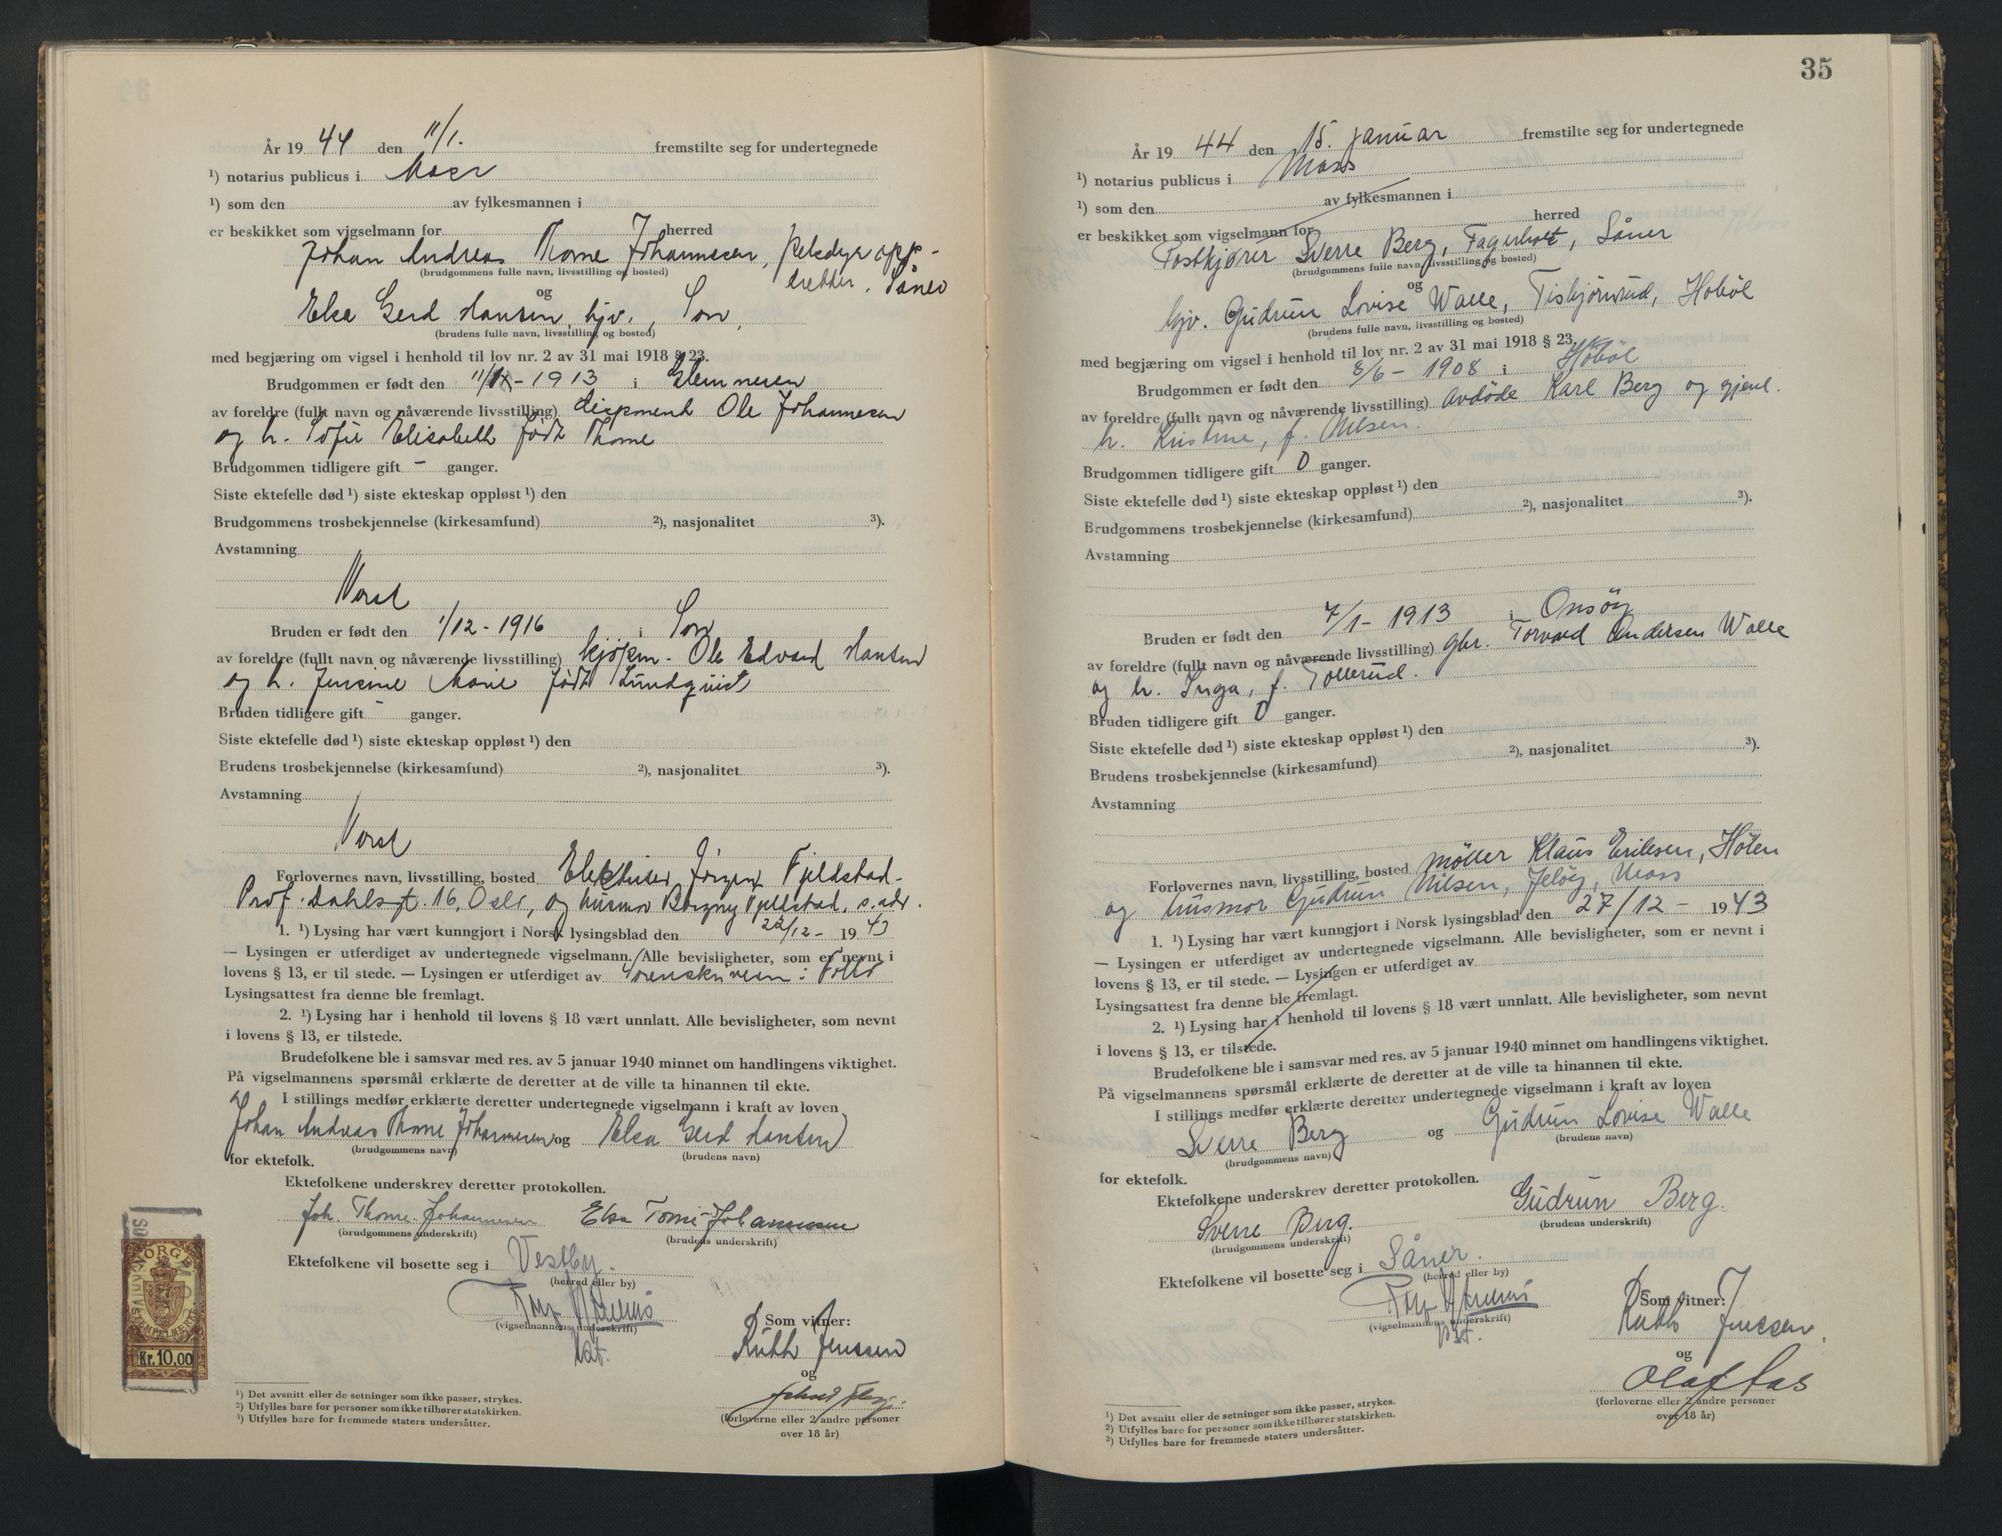 År 1944 den 11/1. fremstilte seg for undertegnede
¹) notarius publicus i Moss
¹) som den av fylkesmannen i
er beskikket som vigselmann for herred
Johan Andreas Thorne Johannessen, pelsdyropp-
(brudgommens fulle navn, livsstilling og bosted)
dretter. Såner
og
Elsa Gerd Hansen, hjv., Son,
(brudens fulle navn, livsstilling og bosted)
med begjæring om vigsel i henhold til lov nr. 2 av 31 mai 1918 § 23.
Brudgommen er født den 11/ - 1913 i Glemmen
av foreldre (fullt navn og nåværende livsstilling) disponent Ole Johannessen
og h. Sofie Elisabeth født Thorne
Brudgommen tidligere gift - ganger.
Siste ektefelle død ¹) siste ekteskap oppløst ¹) den
Brudgommens trosbekjennelse (kirkesamfund) ²), nasjonalitet ³).
Avstamning
Norsk
Bruden er født den 1/12 - 1916 i Son
av foreldre (fullt navn og nåværende livsstilling) kjøpm. Ole Edvard Hansen
og h. Jensine Marie født Lundquist
Bruden tidligere gift - ganger.
Siste ektefelle død ¹) siste ekteskap oppløst ¹) den
Brudens trosbekjennelse (kirkesamfund) ²), nasjonalitet ³).
Avstamning
Norsk
Forlovernes navn, livsstilling, bosted Jørgen Fjeldstad.
Prof. Dahlsgt. 16, Oslo, og husmor Borgny Fjeldstad, s. adr.
1. ¹) Lysing har vært kunngjort i Norsk lysingsblad den 22/12 - 1943
— Lysingen er utferdiget av undertegnede vigselmann. Alle bevisligheter, som er nevnt i
lovens § 13, er til stede. — Lysingen er utferdiget av Sorenskriveren i Follo
Lysingsattest fra denne ble fremlagt.
2. ¹) Lysing har i henhold til lovens § 18 vært unnlatt. Alle bevisligheter, som nevnt
i lovens § 13, er tilstede.
Brudefolkene ble i samsvar med res. av 5 januar 1940 minnet om handlingens viktighet.
På vigselmannens spørsmål erklærte de deretter at de ville ta hinannen til ekte.
I stillings medfør erklærte deretter undertegnede vigselmann i kraft av loven
Johan Andreas Thorne Johannessen og Elsa Gerd Hansen
(brudgommens navn) (brudens navn)
for ektefolk.
Ektefolkene underskrev deretter protokollen.
Joh. Thorne-Johannessen Elsa Torne-Johannessen
(brudgommens underskrift) (brudens underskrift)
Ektefolkene vil bosette seg i Vestby.
(herred eller by)
(vigselmannens underskrift)
Som vitner:
Ruth Jenssen
og
(forloverne eller 2 andre personer
over 18 år)
NORGE
STEMPELMERKE
Kr. 10.00
¹) Det avsnitt eller de setninger som ikke passer, strykes.
²) Utfylles bare for personer som ikke tilhører statskirken.
³) Utfylles bare for fremmede staters undersåtter.
35
År 1944 den 15. januar fremstilte seg for undertegnede
¹) notarius publicus i Moss
¹) som den av fylkesmannen i
er beskikket som vigselmann for herred
Postkjører Sverre Berg, Fagerholt, Såner
(brudgommens fulle navn, livsstilling og bosted)
og
hjv. Gudrun Lovise Walle, Tisbjørnrud, Hobøl
(brudens fulle navn, livsstilling og bosted)
med begjæring om vigsel i henhold til lov nr. 2 av 31 mai 1918 § 23.
Brudgommen er født den /6 - 1908 i Hobøl
av foreldre (fullt navn og nåværende livsstilling) avdøde Karl Berg og gjenl.
h. Kristine, f. Nilsen.
Brudgommen tidligere gift 0 ganger.
Siste ektefelle død ¹) siste ekteskap oppløst ¹) den
Brudgommens trosbekjennelse (kirkesamfund) ²), nasjonalitet ³).
Avstamning
Bruden er født den 7/1 - 1913 i Onsøy
av foreldre (fullt navn og nåværende livsstilling) gbr. Torvald Andersen Walle
og h. Inga, f. Tollerud.
Bruden tidligere gift 0 ganger.
Siste ektefelle død ¹) siste ekteskap oppløst ¹) den
Brudens trosbekjennelse (kirkesamfund) ²), nasjonalitet ³).
Avstamning
Forlovernes navn, livsstilling, bosted møller Klaus Eriksen, Hølen
og husmor Gudrun Nilsen, Jeløy, Moss
1. ¹) Lysing har vært kunngjort i Norsk lysingsblad den 27/12 - 1943
— Lysingen er utferdiget av undertegnede vigselmann. Alle bevisligheter, som er nevnt i
lovens § 13, er til stede. — Lysingen er utferdiget av
Lysingsattest fra denne ble fremlagt.
2. ¹) Lysing har i henhold til lovens § 18 vært unnlatt. Alle bevisligheter, som nevnt
i lovens § 13, er tilstede.
Brudefolkene ble i samsvar med res. av 5 januar 1940 minnet om handlingens viktighet.
På vigselmannens spørsmål erklærte de deretter at de ville ta hinannen til ekte.
I stillings medfør erklærte deretter undertegnede vigselmann i kraft av loven
Sverre Berg og Gudrun Lovise Walle
(brudgommens navn) (brudens navn)
for ektefolk.
Ektefolkene underskrev deretter protokollen.
Sverre Berg. Gudrun Berg.
(brudgommens underskrift) (brudens underskrift)
Ektefolkene vil bosette seg i Såner.
(herred eller by)
(vigselmannens underskrift)
Som vitner:
Ruth Jenssen.
og
Olaf Aas
(forloverne eller 2 andre personer
over 18 år)
¹) Det avsnitt eller de setninger som ikke passer, strykes.
²) Utfylles bare for personer som ikke tilhører statskirken.
³) Utfylles bare for fremmede staters undersåtter.